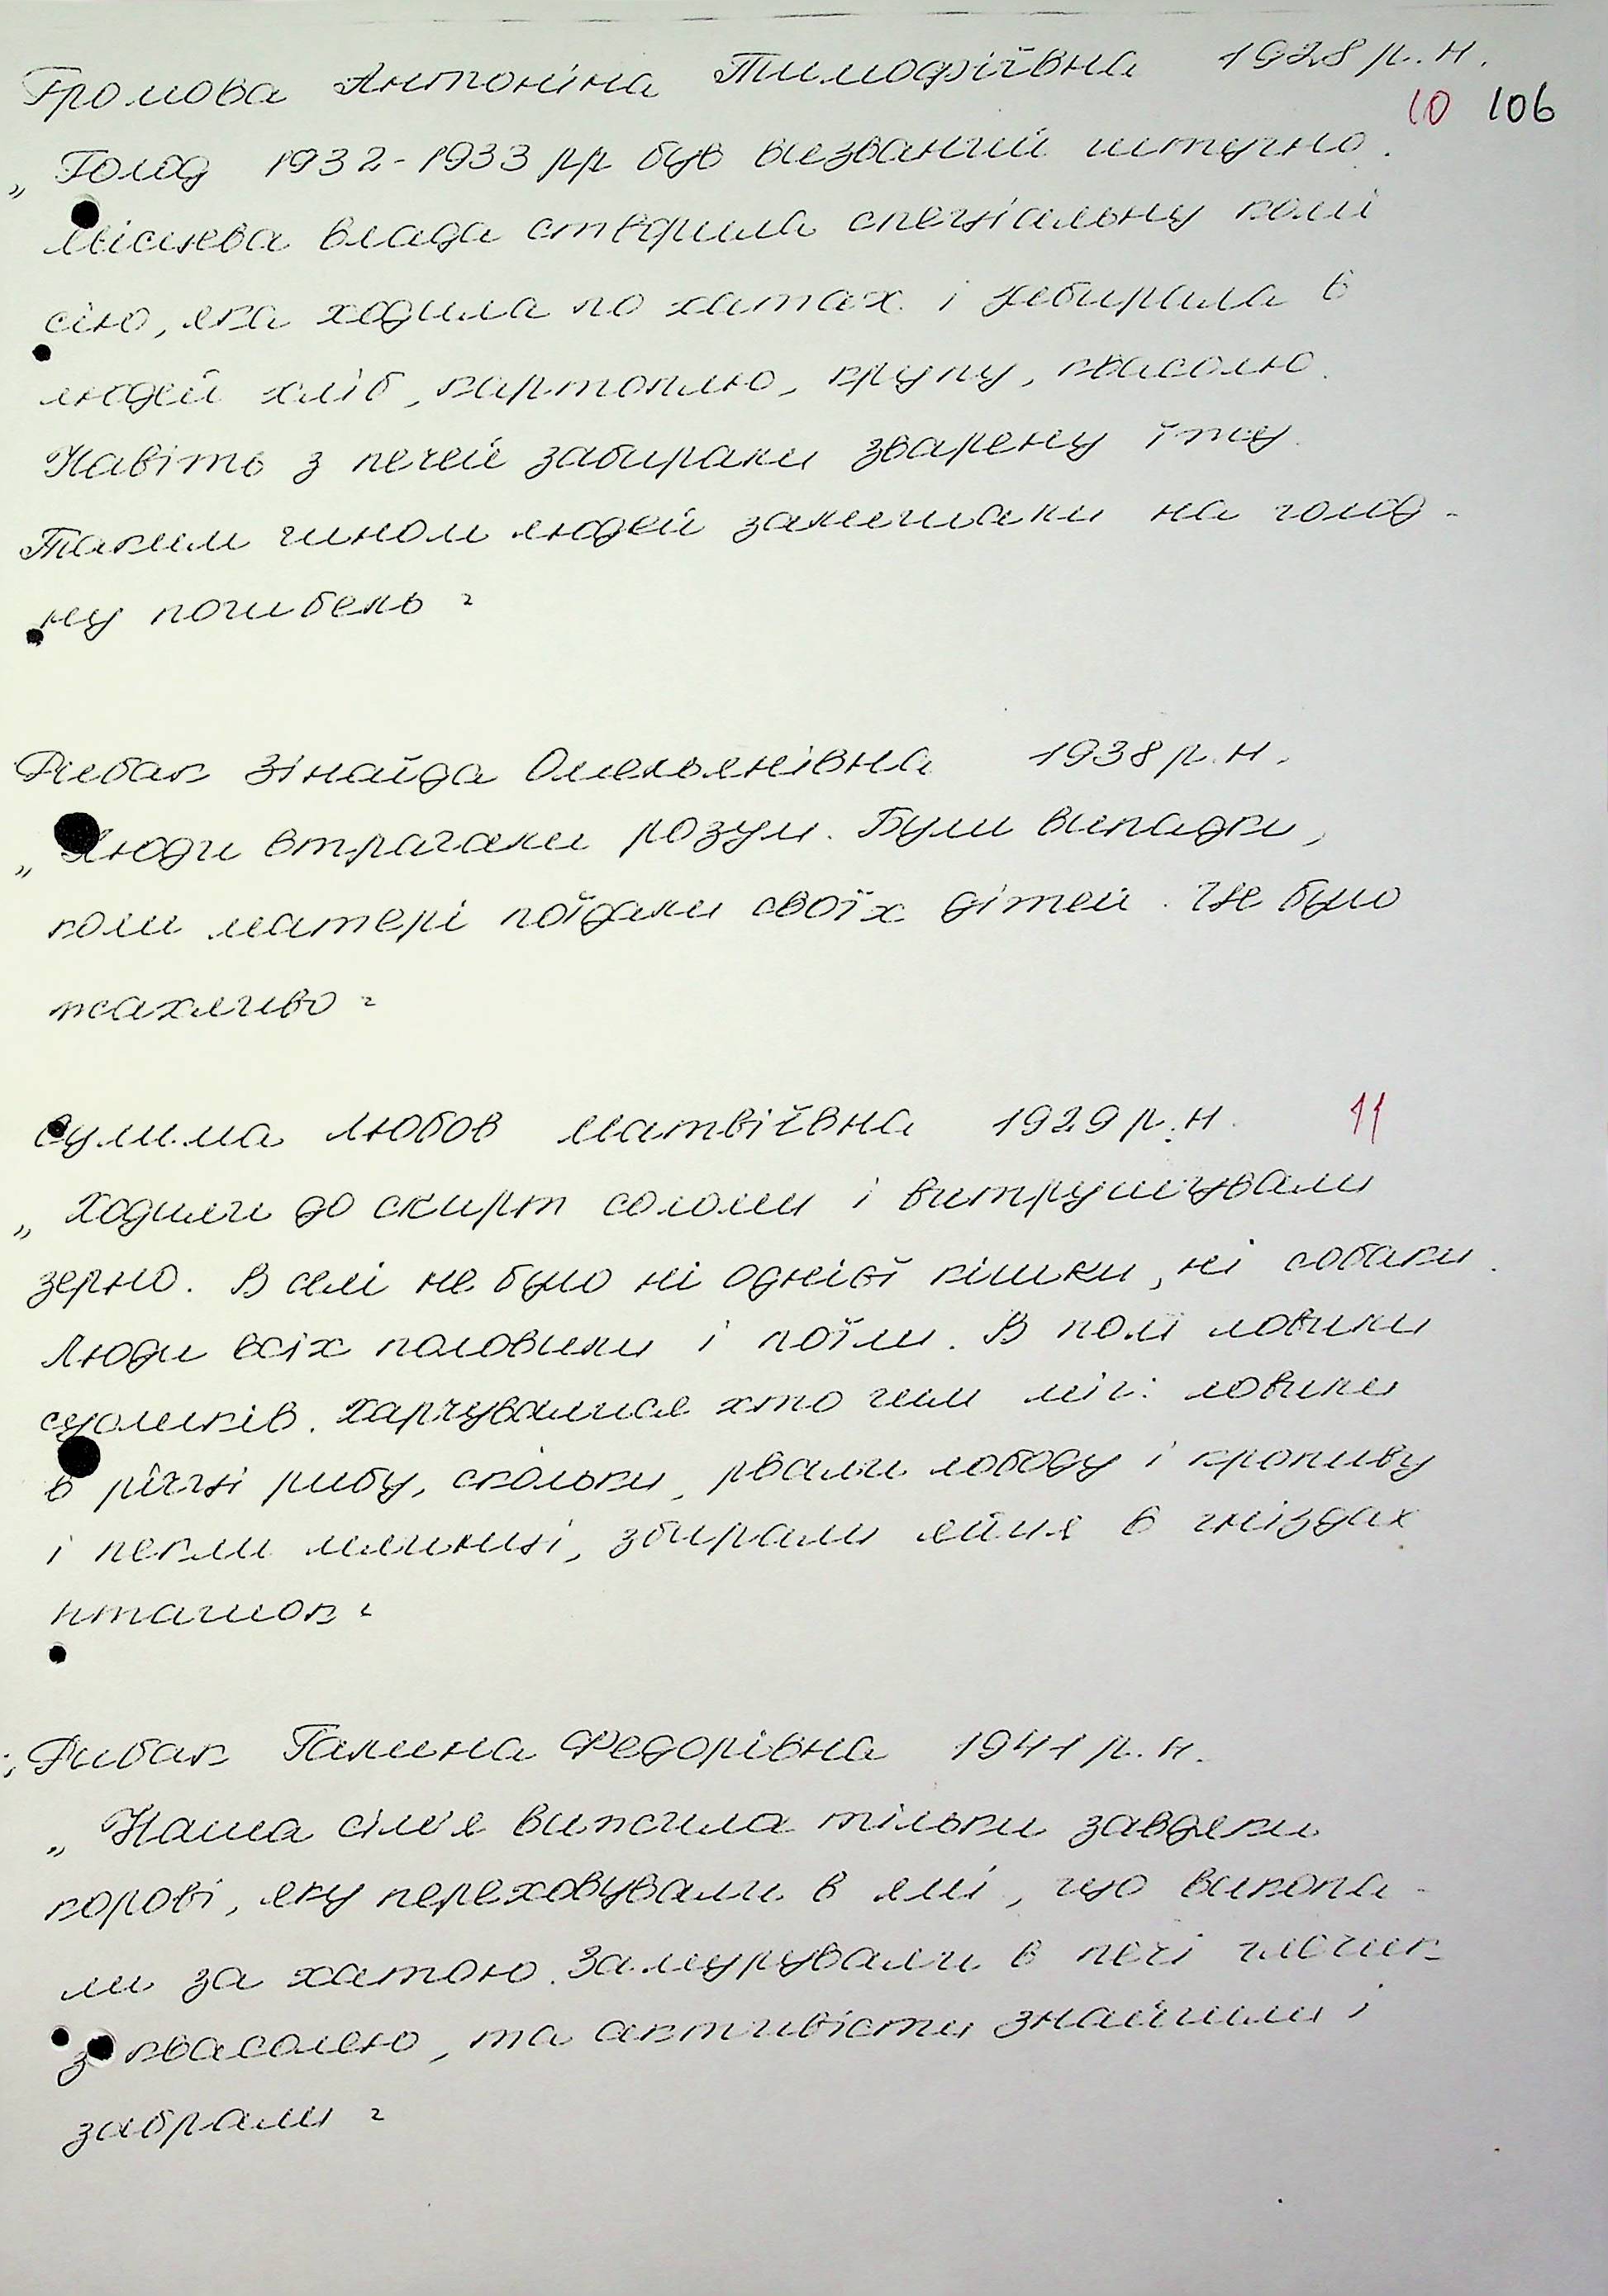 Громова Антоніна Тимофіївна 1928 р.н.
10 106
„Голод 1932-1933 рр був визваний штучно.
Місцева влада створила спеціальну комі
сію, яка ходила по хатах і забирала в
людей хліб, картоплю, крупу, квасолю.
Навіть з печей забирали зварену їжу.
Таким чином людей залишали на голод-
ну погибель"
Рибак Зінаїда Омелянівна 1938 р.н.
„Люди втрачали розум. Були випадки,
коли матері поїдали своїх дітей. Це було
жахливо"
Сулима Любов Матвіївна 1929 р.н. 11
„Ходили до скирт соломи і витрушували
зерно. В селі не було ні однієї кішки, ні собаки.
Люди всіх половили і поїли. В полі ловили
сусликів. Харчувалися хто чим міг: ловили
в річці рибу, скольки, рвали лободу і кропиву
і пекли млинці, збирали яйця в гніздах
пташок"
Рибак Галина Федорівна 1941 р.н.
„Наша сім'я вижила тільки завдяки
корові, яку переховували в ямі, що викопа-
ли за хатою. Замурували в печі глечик
з квасолею, та активісти знайшли і
забрали"